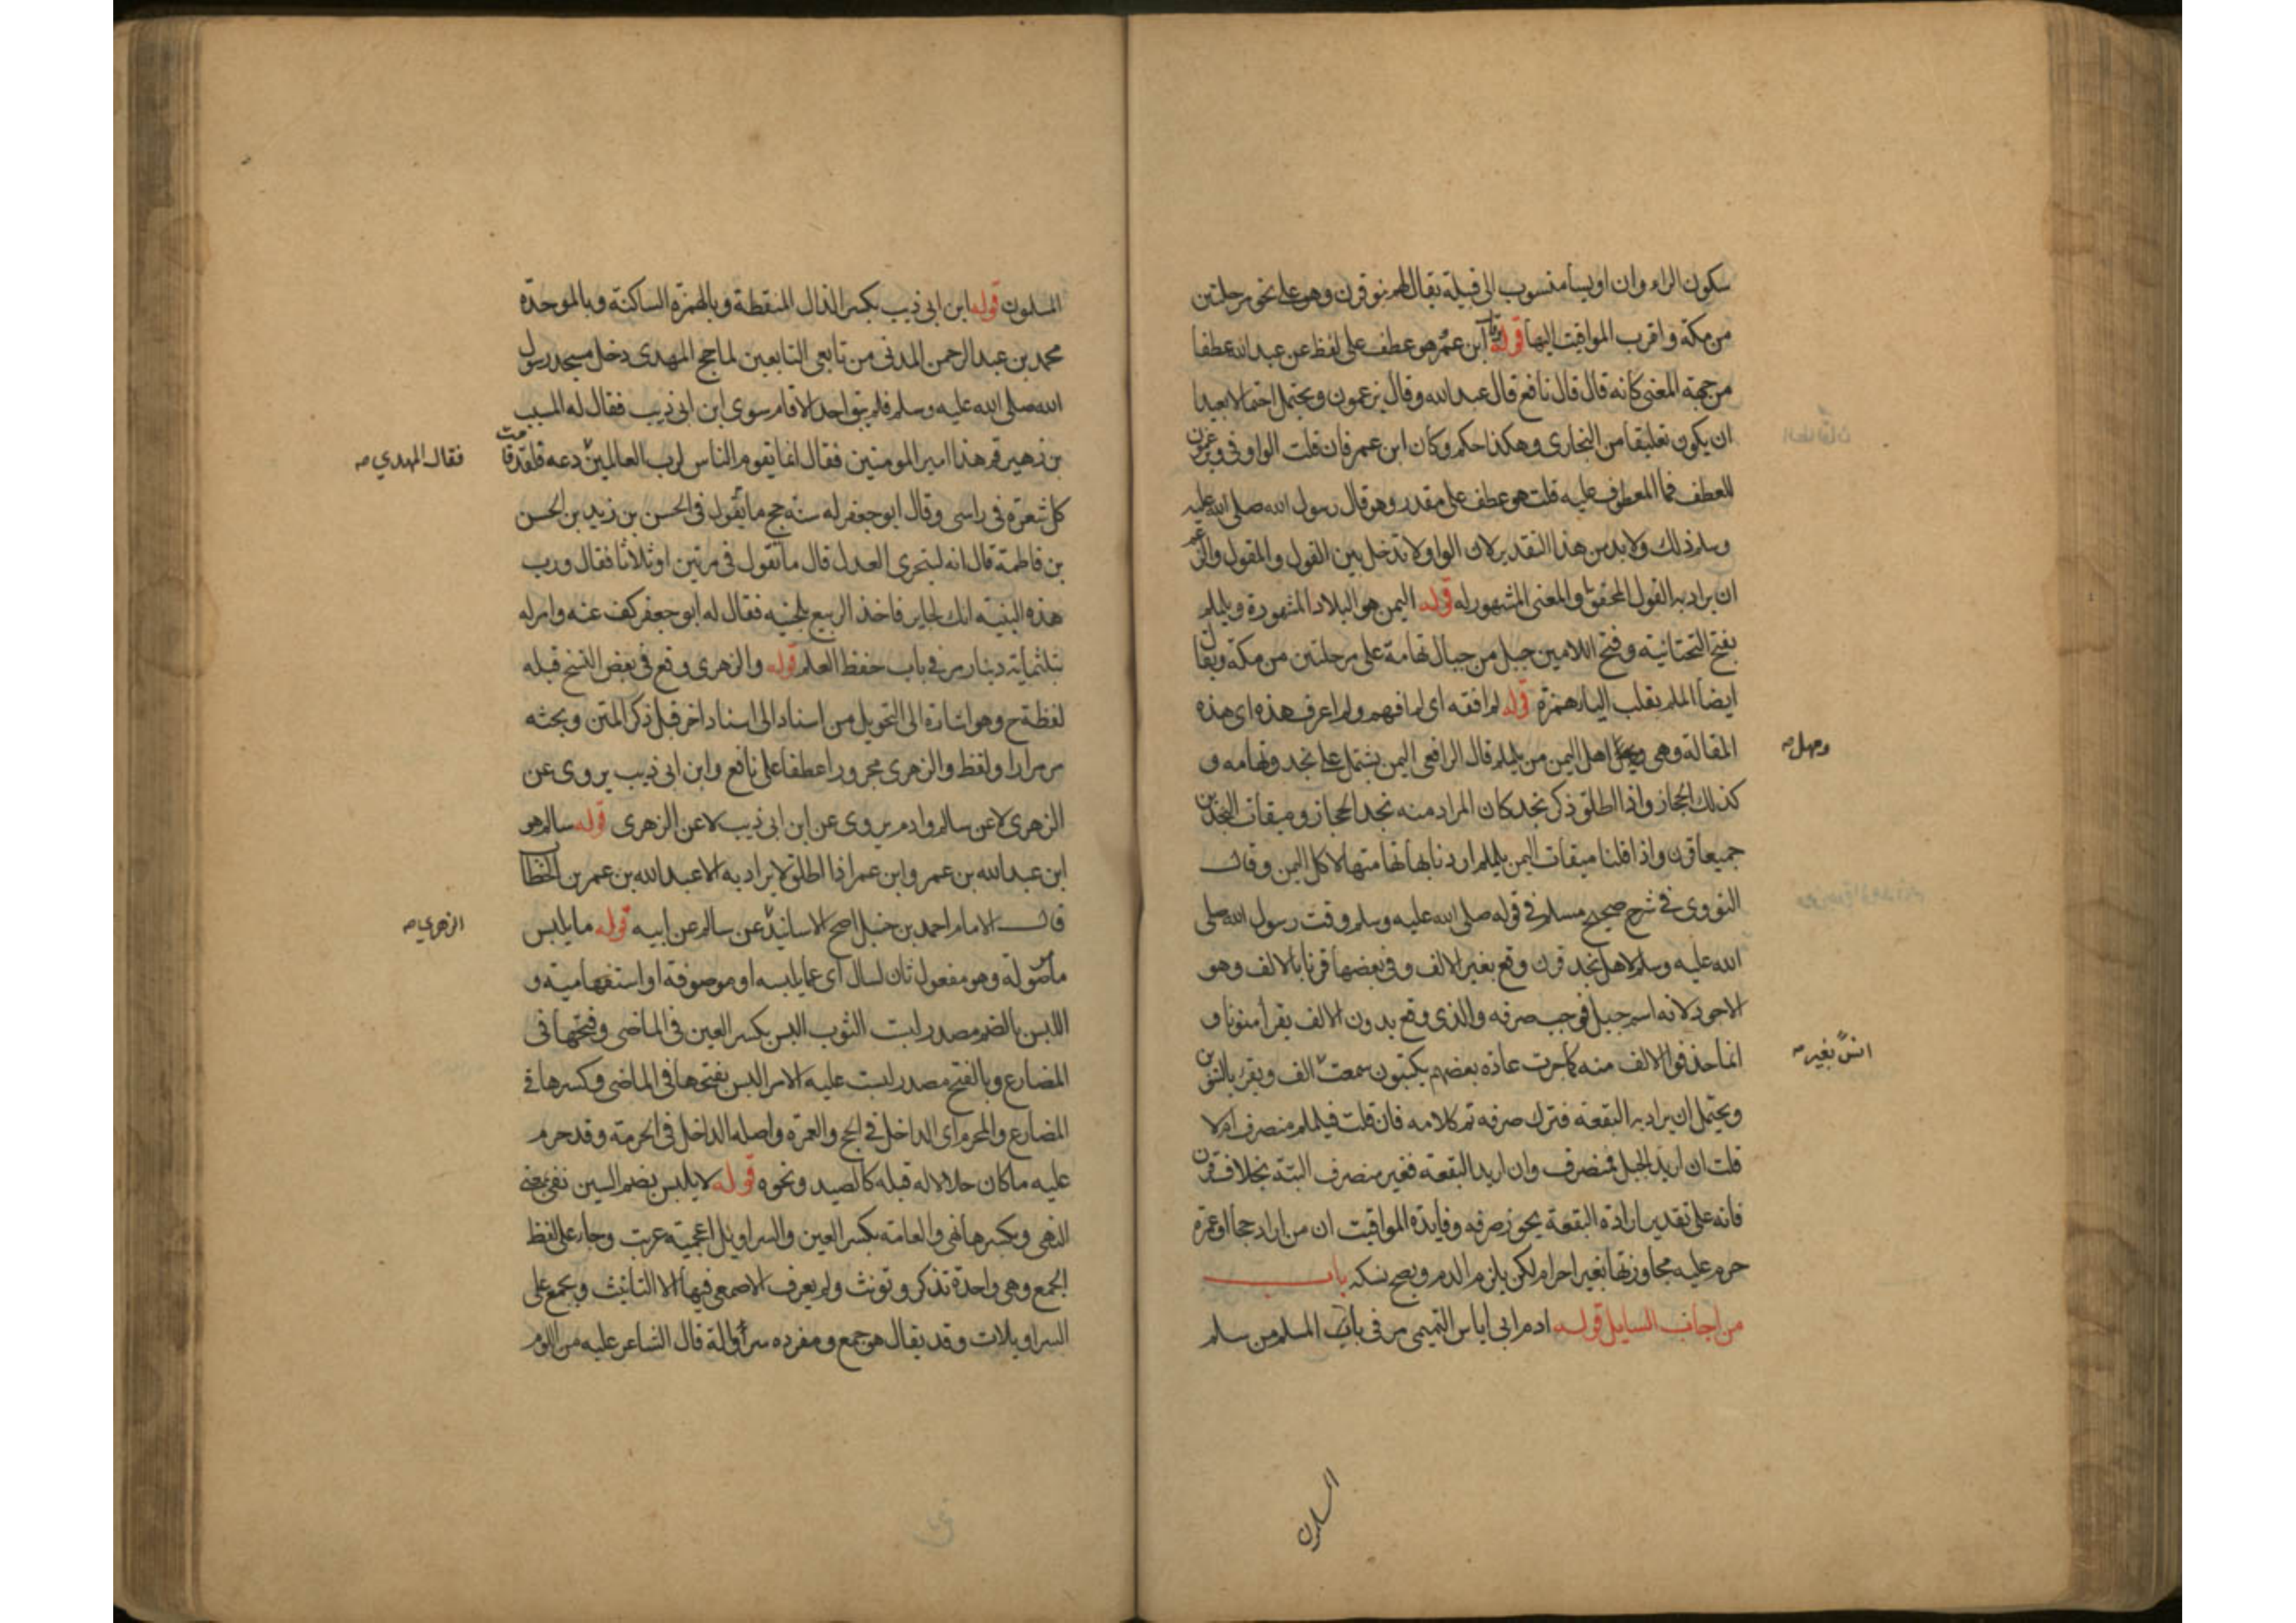 سكون الراء وان اويسا منسوب الى قبيلة يقال لهم بنو قرن وهو على نحو مرحلتين
من مكة واقرب المواقيت اليها قوله وقال ابن عمر هو عطف على لفظ عن عبد الله عطفا
من جهة المعنى كانه قال قال نافع قال عبد الله وقال يزعمون ويحتمل احتمالا بعيدا
ان يكون تعليقا من البخارى وهكذا حكم وكان ابن عمر فان قلت الواو فى ويزعمون
للعطف فما المعطوف عليه قلت هو عطف على مقدر وهو قال رسول الله صلى الله عليه
وسلم ذلك ولا بد من هذا التقدير لان الواو لا تدخل بين القول والمقول والزعم
ان يراد به القول المحقق والمعنى المشهور له قوله اليمن هو البلاد المشهورة ويلملم
بفتح التحتانية وفتح اللامين جبل من جبال تهامة على مرحلتين من مكة ويقال
ايضا الملم بقلب الياء همزة قوله لم افقه اى لم افهم ولم اعرف هذه اى هذه
المقالة وهى اهل اليمن من يلملم قال الرافعى اليمن يشتمل على نجد وتهامه و
ومهل صح
كذلك الحجاز واذا اطلق ذكر نجد كان المراد منه نجد الحجاز وميقات النجدين
جميعا قرن واذا قلنا ميقات اليمن يلملم اردنا بها تهامتها لا كل اليمن وقال
النووى فى شرح صحيح مسلم فى قوله صلى الله عليه وسلم وقت رسول الله صلى
الله عليه وسلم لاهل نجد قرن وقع بغير الالف وفى بعضها قرنا بالالف وهو
الاجود لانه اسم جبل فوجب صرفه والذى وقع بدون الالف يقرأ منونا و
انما حذفوا الالف منه كما جرت عادة بعضهم يكتبون سمعت الف ويقرأ بالتنوين
انسً بغير صح
ويحتمل ان يراد به البقعة فترك صرفه تم كلامه فان قلت فيلملم منصرف ام لا
قلت ان اريد الجبل فمنصرف وان اريد البقعة فغير منصرف البتة بخلاف قرن
فانه على تقدير ارادة البقعة يجوز صرفه وفايدة المواقيت ان من اراد حجا او عمرة
حرم عليه مجاوزتها بغير احرام لكن يلزم الدم ويصح نسكه باب
من اجاب السايل قوله ادم ابى اياس التميمى مر فى باب المسلم من سلم
المسلمون
المسلمون قوله ابن ابى ذيب بكسر الذال المنقطة وبالهمزة الساكنة وبالموحدة
محمد بن عبد الرحمن المدنى من تابعى التابعين لما حج المهدى دخل مسجد رسول
الله صلى الله عليه وسلم فلم يبق احد الا قام سوى ابن ابى ذيب فقال له المسيب
بن زهير قم هذا امير المومنين فقال انما يقوم الناس لرب العالمين دعه فلقد قامت
فقال المهدي صح
كل شعرة فى راسى وقال ابو جعفر له سنة حج ما تقول فى الحسن بن زيد بن الحسن
بن فاطمة قال انه ليتحرى العدل قال ما تقول فى مرتين او ثلاثا فقال ورب
هذه البنية انك لجاير فاخذ الربيع بلحيته فقال له ابو جعفر كف عنه وامر له
بثلثماية دينار مر فى باب حفظ العلم قوله والزهرى وقع فى بعض النسخ قبله
لفظة ح وهو اشارة الى التحويل من اسناد الى اسناد اخر قبل ذكر المتن وبحثه
مر مرارا ولفظ والزهرى مجرور اعطفا على نافع وابن ابى ذيب يروى عن
الزهرى لا عن سالم وادم يروى عن ابن ابى ذيب لا عن الزهرى قوله سالم هو
ابن عبد الله بن عمر وابن عمر اذا اطلق لا يراد به الا عبد الله بن عمر بن الخطاب
قال الامام احمد بن حنبل اصح الاسانيد عن سالم عن ابيه قوله ما يلبس
الزهري صح
ما موصولة وهو مفعول ثان لسال اى عما يلبسه او موصوفة او استفهامية و
اللبس بالضم مصدر لبست الثوب البس بكسر العين فى الماضى وفتحها فى
المضارع وبالفتح مصدر لبست عليه الامر البس بفتحها فى الماضى وكسرها فى
المضارع والمحرم اى الداخل فى الحج والعمرة واصله الداخل فى الحرمة وقد حرم
عليه ما كان حلالا له قبله كالصيد ونحوه قوله لا يلبس بضم السين نفى بمعنى
النهى وبكسرها نهى والعامة بكسر العين والسراويل اعجمية عربت وجاء على لفظ
الجمع وهى واحدة تذكر وتونث ولم يعرف الاصمعى فيها الا التانيث ويجمع على
السراويلات وقد يقال هو جمع ومفرده سروالة قال الشاعر عليه من اللوم